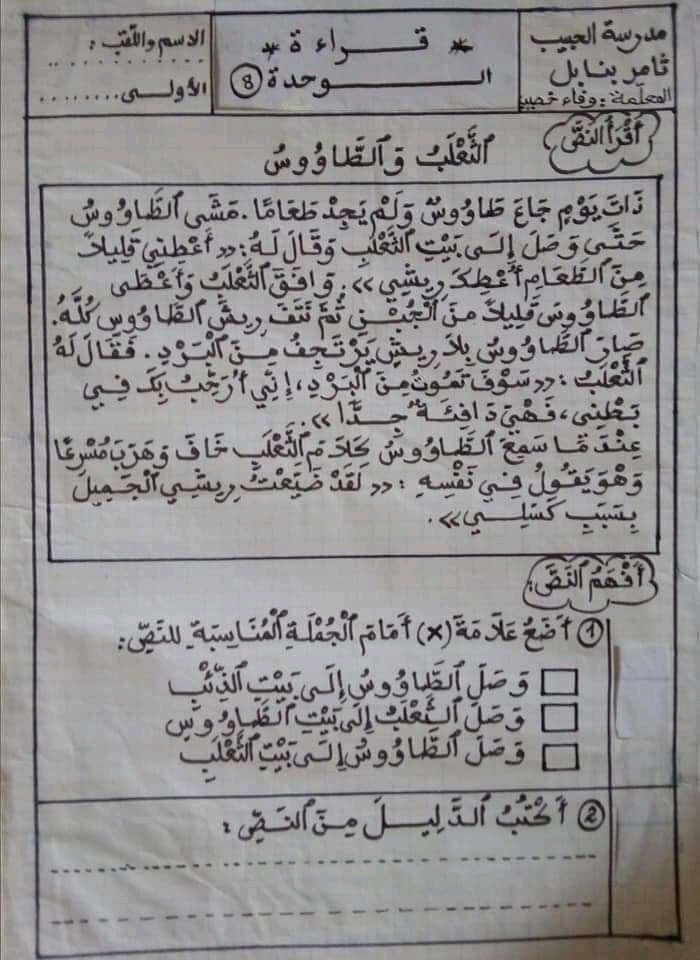 مدرسة الحبيب
ثامر بنابل
المعلمة : وفاء خصيب
* قراءة *
الوحدة 8
الاسم واللقب :
الأولى ........
أَقْرَأُ النَّصَّ
الثَّعْلَبُ وَالطَّاوُوسُ
ذَاتَ يَوْمٍ جَاعَ طَاوُوسٌ وَلَمْ يَجِدْ طَعَامًا. مَشَى الطَّاوُوسُ
حَتَّى وَصَلَ إِلَى بَيْتِ الثَّعْلَبِ وَقَالَ لَهُ : << أَعْطِنِي قَلِيلاً
مِنَ الطَّعَامِ أُعْطِكَ رِيشِي >>. وَافَقَ الثَّعْلَبُ وَأَعْطَى
الطَّاوُوسَ قَلِيلاً مِنَ الْجُبْنِ ثُمَّ نَتَفَ رِيشَ الطَّاوُوسِ كُلَّهُ.
صَارَ الطَّاوُوسُ بِلاَ رِيشٍ يَرْتَجِفُ مِنَ الْبَرْدِ. فَقَالَ لَهُ
الثَّعْلَبُ : << سَوْفَ تَمُوتُ مِنَ الْبَرْدِ، إِنِّي أُرَحِّبُ بِكَ فِي
بَطْنِي، فَهْيَ دَافِئَةٌ جِدًّا >>.
عِنْدَمَا سَمِعَ الطَّاوُوسُ كَلاَمَ الثَّعْلَبِ خَافَ وَهَرَبَ مُسْرِعًا
وَهْوَ يَقُولُ فِي نَفْسِهِ : << لَقَدْ ضَيَّعْتُ رِيشِي الْجَمِيلَ
بِسَبَبِ كَسَلِي >>.
أَفْهَمُ النَّصَّ :
1 أَضَعُ عَلاَمَةَ (x) أَمَامَ الْجُمْلَةِ الْمُنَاسِبَةِ لِلنَّصِّ :
وَصَلَ الطَّاوُوسُ إِلَى بَيْتِ الذِّئْبِ
وَصَلَ الثَّعْلَبُ إِلَى بَيْتِ الطَّاوُوسِ
وَصَلَ الطَّاوُوسُ إِلَى بَيْتِ الثَّعْلَبِ
2 أَكْتُبُ الدَّلِيلَ مِنَ النَّصِّ :